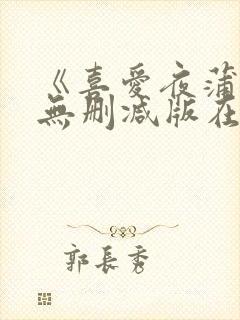 《喜愛夜蒲
無刪減版在
郭長秀